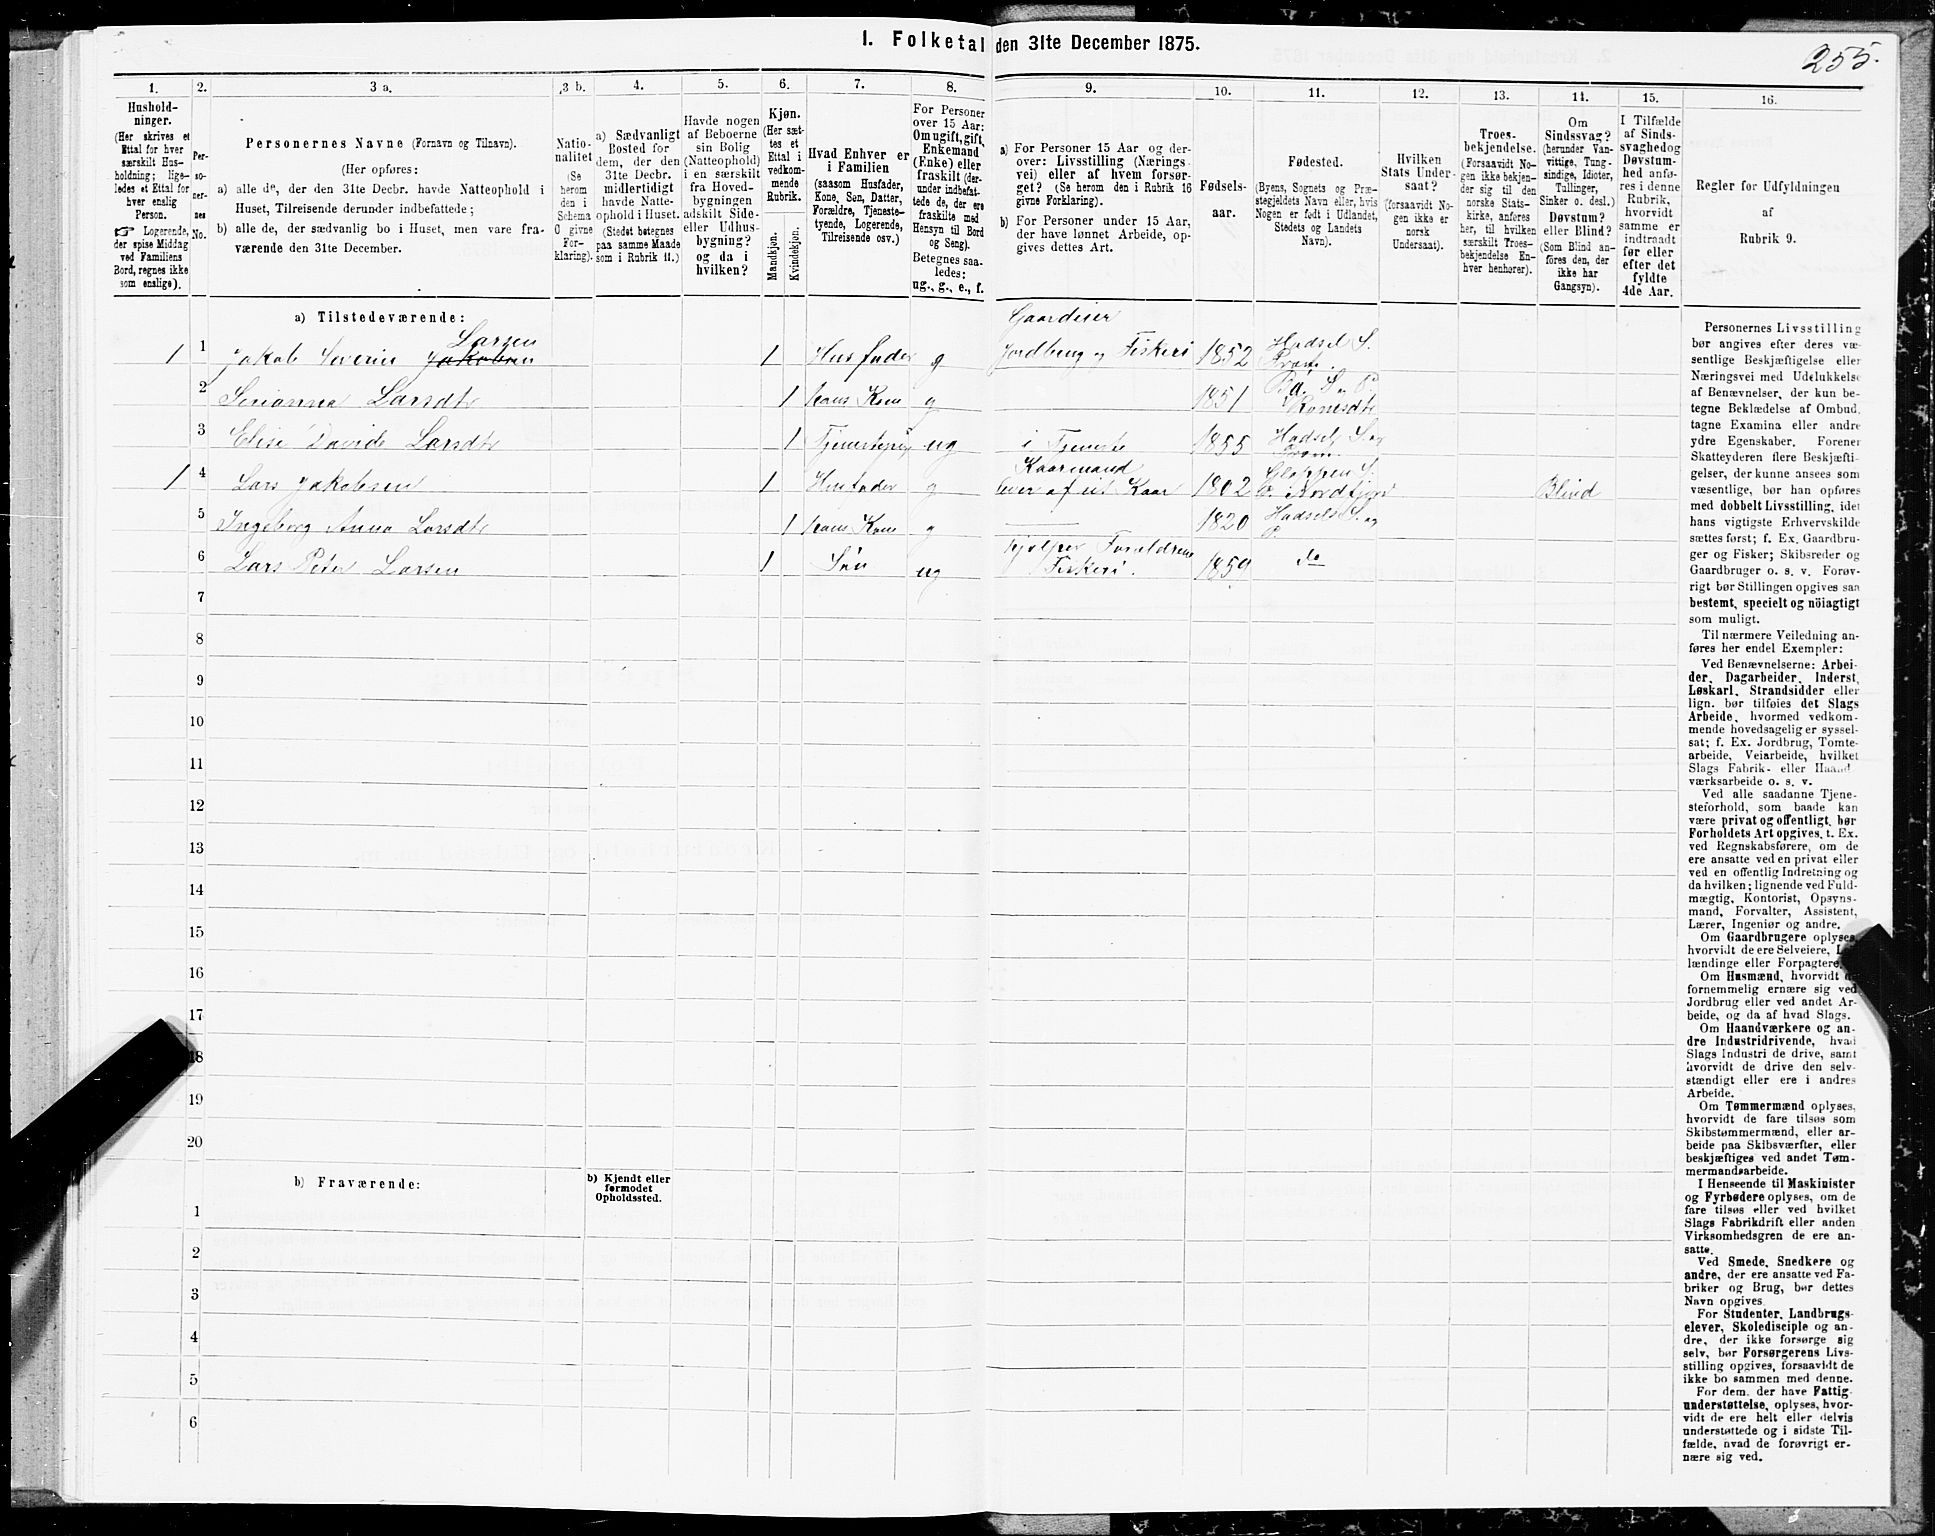 I. Folketal den 31te December 1875.
255.
1.
Hushold-
ninger.
(Her skrives et
Ettal for hver
særskilt Hus-
holdning; lige-
ledes et Ettal for
hver enslig
Person.
☞ Logerende,
der spise Middag
ved Familiens
Bord, regnes ikke
som enslige).
2.
Per-
so-
ner-
nes
No.
3 a.
Personernes Navne (Fornavn og Tilnavn).
(Her opføres:
a) alle de, der den 31te Decbr. havde Natteophold i
Huset, Tilreisende derunder indbefattede;
b) alle de, der sædvanlig bo i Huset, men vare fra-
værende den 31te December.
3 b.
Natio-
nalitet
(Se
herom
den i
Schema
C givne
For-
klaring).
4.
a) Sædvanligt
Bosted for
dem, der den
31te Decbr.
midlertidigt
havde Natte-
ophold i Huset.
(Stedet betegnes
paa samme Maade
som i Rubrik 11.)
5.
Havde nogen
af Beboerne
sin Bolig
(Natteophold)
i en særskilt
fra Hoved-
bygningen
adskilt Side-
eller Udhus-
bygning?
og da i
hvilken?
6.
Kjøn.
(Her sæt-
tes et
Ettal i
vedkom-
mende
Rubrik.
Mandkjøn.
Kvindekjøn.
7.
Hvad Enhver er
i Familien
(saasom Husfader,
Kone, Søn, Datter,
Forældre, Tjeneste-
tyende, Logerende,
Tilreisende osv.)
8.
For Personer
over 15 Aar:
Om ugift, gift,
Enkemand
(Enke) eller
fraskilt (der-
under indbefat-
tede de, der ere
fraskilte med
Hensyn til Bord
og Seng).
Betegnes saa-
ledes:
ug., g., e., f.
9.
a) For Personer 15 Aar og der-
over: Livsstilling (Nærings-
vei) eller af hvem forsør-
get? (Se herom den i Rubrik 16
givne Forklaring).
b) For Personer under 15 Aar,
der have lønnet Arbeide, op-
gives dettes Art.
10.
Fødsels-
aar.
11.
Fødested.
(Byens, Sognets og Præ-
stegjeldets Navn eller, hvis
Nogen er født i Udlandet,
Stedets og Landets
Navn).
12.
Hvilken
Stats Under-
saat?
(forsaavidt No-
gen ikke er
norsk
Undersaat).
13.
Troes-
bekjendelse.
(Forsaavidt No-
gen ikke bekjen-
der sig til den
norske Stats-
kirke, anføres
her, til hvilken
særskilt Troes-
bekjendelse En-
hver henhører).
14.
Om
Sindssvag?
(herunder Van-
vittige, Tung-
sindige, Idioter,
Tullinger,
Sinker o. desl.)
Døvstum?
eller Blind?
(Som Blind an-
føres den, der
ikke har
Gangsyn).
15.
I Tilfælde
af Sinds-
svaghed og
Døvstum-
hed anfø-
res i denne
Rubrik,
hvorvidt
samme er
indtraadt
før eller
efter det
fyldte
4de Aar.
16.
Regler for Udfyldningen
af
Rubrik 9.
a) Tilstedeværende:
Larsen
Gaardeier
1 1 Jakob Severin Jakobsen 1 Husfader g Jordbrug og Fiskeri 1852 Hadsel S.
2 Larsdtr 1 hans Kone g 1851
3 Elise Larsdtr 1 ug i Tjeneste 1855 Hadsel S. og
Kaarmand
1 4 Lars Jakobsen 1 Husfader g lever af sit Kaar 1802 Gloppen S. Blind
5 Ingeborg Anna Larsdtr 1 hans Kone g 1820 Hadsels S. og
P.
6 Lars Peter Larsen 1 Søn ug hjelper Forældrene 1859 do
Fiskeri.
7
8
9
10
11
12
13
14
15
16
17
18
19
20
b) Fraværende:
b) Kjendt eller
formodet
Opholdssted.
1
2
3
4
5
6
Personernes Livsstilling
bør angives efter deres væ-
sentlige Beskjæftigelse eller
Næringsvei med Udelukkelse
af Benævnelser, der kun be-
tegne Beklædelse af Ombud,
tagne Examina eller andre
ydre Egenskaber. Forener
Skatteyderen flere Beskjæfti-
gelser, der kunne ansees som
væsentlige, bør han opføres
med dobbelt Livsstilling, idet
hans vigtigste Erhvervskilde
sættes først; f. Ex. Gaardbru-
ger og Fisker; Skibsreder og
Gaardbruger o. s. v. Forøv-
rigt bør Stillingen opgives saa
bestemt, specielt og nöiagtigt
som muligt.
Til nærmere Veiledning an-
føres her endel Exempler:
Ved Benævnelserne: Arbei-
der, Dagarbeider, Inderst,
Løskarl, Strandsidder eller
lign. bør tilføies det Slags
Arbeide, hvormed vedkom-
mende hovedsagelig er syssel-
sat; f. Ex. Jordbrug, Tomte-
arbeide, Veiarbeide, hvilket
Slags Fabrik- eller Haand-
værksarbeide o. s. v.
Ved alle saadanne Tjene-
steforhold, som baade kan
være privat og offentligt, bør
Forholdets Art opgives, t. Ex.
ved Regnskabsførere, om de
ere ansatte ved en privat eller
ved en offentlig Indretning og
da hvilken; lignende ved Fuld-
mægtig, Kontorist, Opsyns-
mand, Forvalter, Assistent,
Lærer, Ingeniør og andre.
Om Gaardbrugere oplyses,
hvorvidt de ere Selveiere,
lændinge eller Forpagtere.
Om Husmænd, hvorvidt de
fornemmelig ernære sig ved
Jordbrug eller ved andet Ar-
beide, og da af hvad Slags.
Om Haandværkere og an-
dre Industridrivende, hvad
Slags Industri de drive, samt
hvorvidt de drive den selv-
stændigt eller ere i andres
Arbeide.
Om Tømmermænd oplyses,
hvorvidt de fare tilsøs som
Skibstømmermænd, eller ar-
beide paa Skibsværfter, eller
beskjæftiges ved andet Tøm-
mermandsarbeide.
I Henseende til Maskinister
og Fyrbødere oplyses, om de
fare tilsøs eller ved hvilket
Slags Fabrikdrift eller anden
Virksomhedsgren de ere an-
satte.
Ved Smede, Snedkere og
andre, der ere ansatte ved Fa-
briker og Brug, bør dettes
Navn opgives.
For Studenter, Landbrugs-
elever, Skoledisciple og an-
dre, der ikke forsørge sig
selv, bør Forsørgerens Livs-
stilling opgives, forsaavidt de
ikke bo sammen med denne.
For dem, der have Fattig-
understøttelse, oplyses, hvor-
vidt de ere helt eller delvis
understøttede og i sidste Til-
fælde, hvad de forøvrigt er-
nære sig ved.